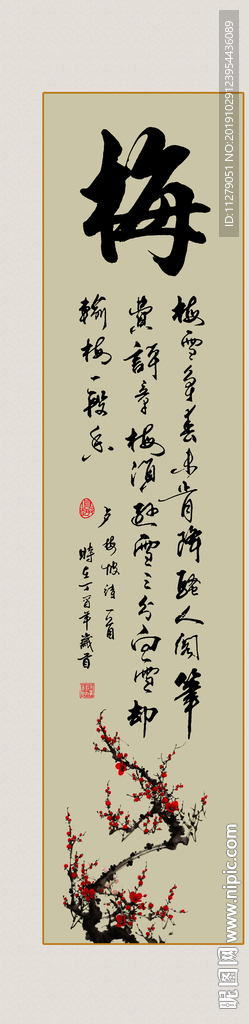 梅
梅雪争春未肯降骚人阁笔
费评章梅须逊雪三分白雪却
输梅一段香
卢梅坡诗一首
时在丁酉年岁首
ID:11279051 NO:20191029123954436089
昵图网 www.nipic.com